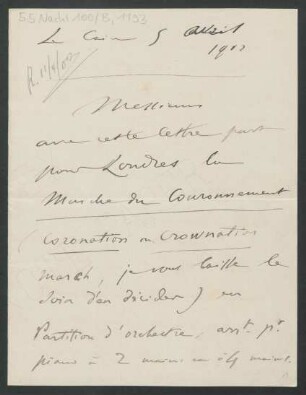 55 Nachl 100/B, 1153
R. 11/4/02
Le Caire 5 Avril
1902
Messieurs
avec cette lettre part
pour Londres la
Marche du Couronnement
(Coronation ou Crownation
March, je vous laisse le
soin d'en décider) en
Partition d'orchestre, arrt. pr.
piano à 2 mains et à 4 mains.